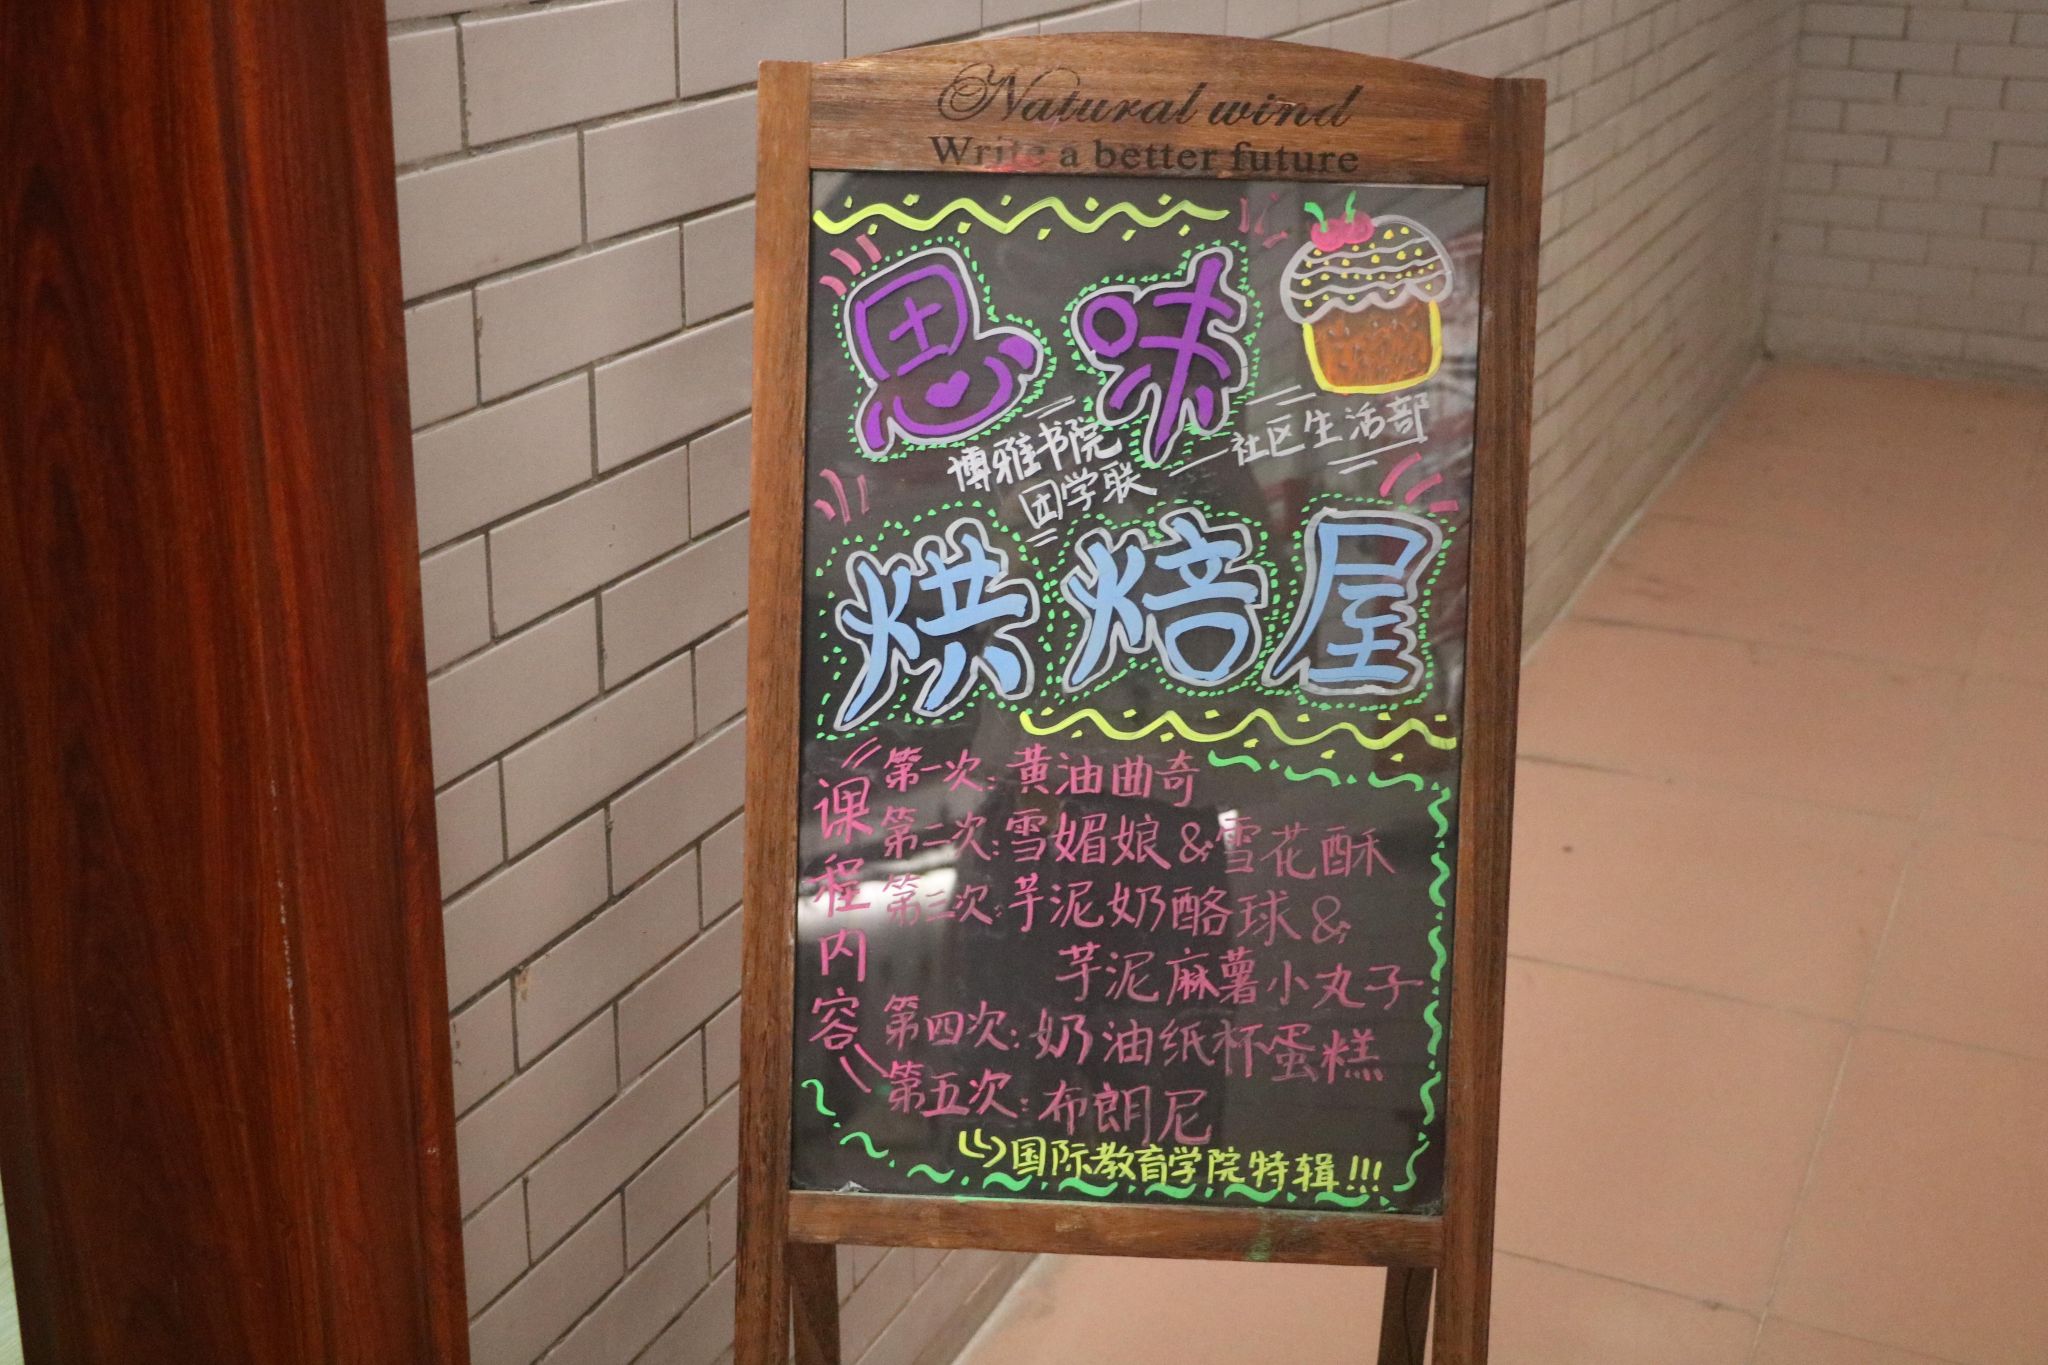 Natural wind
Write a better future
思味
博雅书院
团学联
社区生活部
烘焙屋
课程内容
第一次:黄油曲奇
第二次:雪媚娘&雪花酥
第三次:芋泥奶酪球&
芋泥麻薯小丸子
第四次:奶油纸杯蛋糕
第五次:布朗尼
国际教育学院特辑!!!